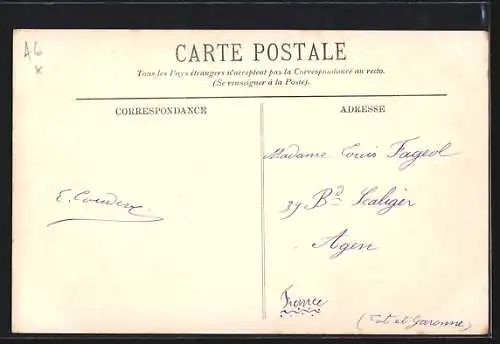 A6
x
CARTE POSTALE
Tous les Pays étrangers n'acceptent pas la Correspondance au recto.
(Se renseigner à la Poste).
CORRESPONDANCE
ADRESSE
Madame Louis Fageol
39 Bd Scaliger
E. Couderc
Agen
France
(Lot et Garonne)